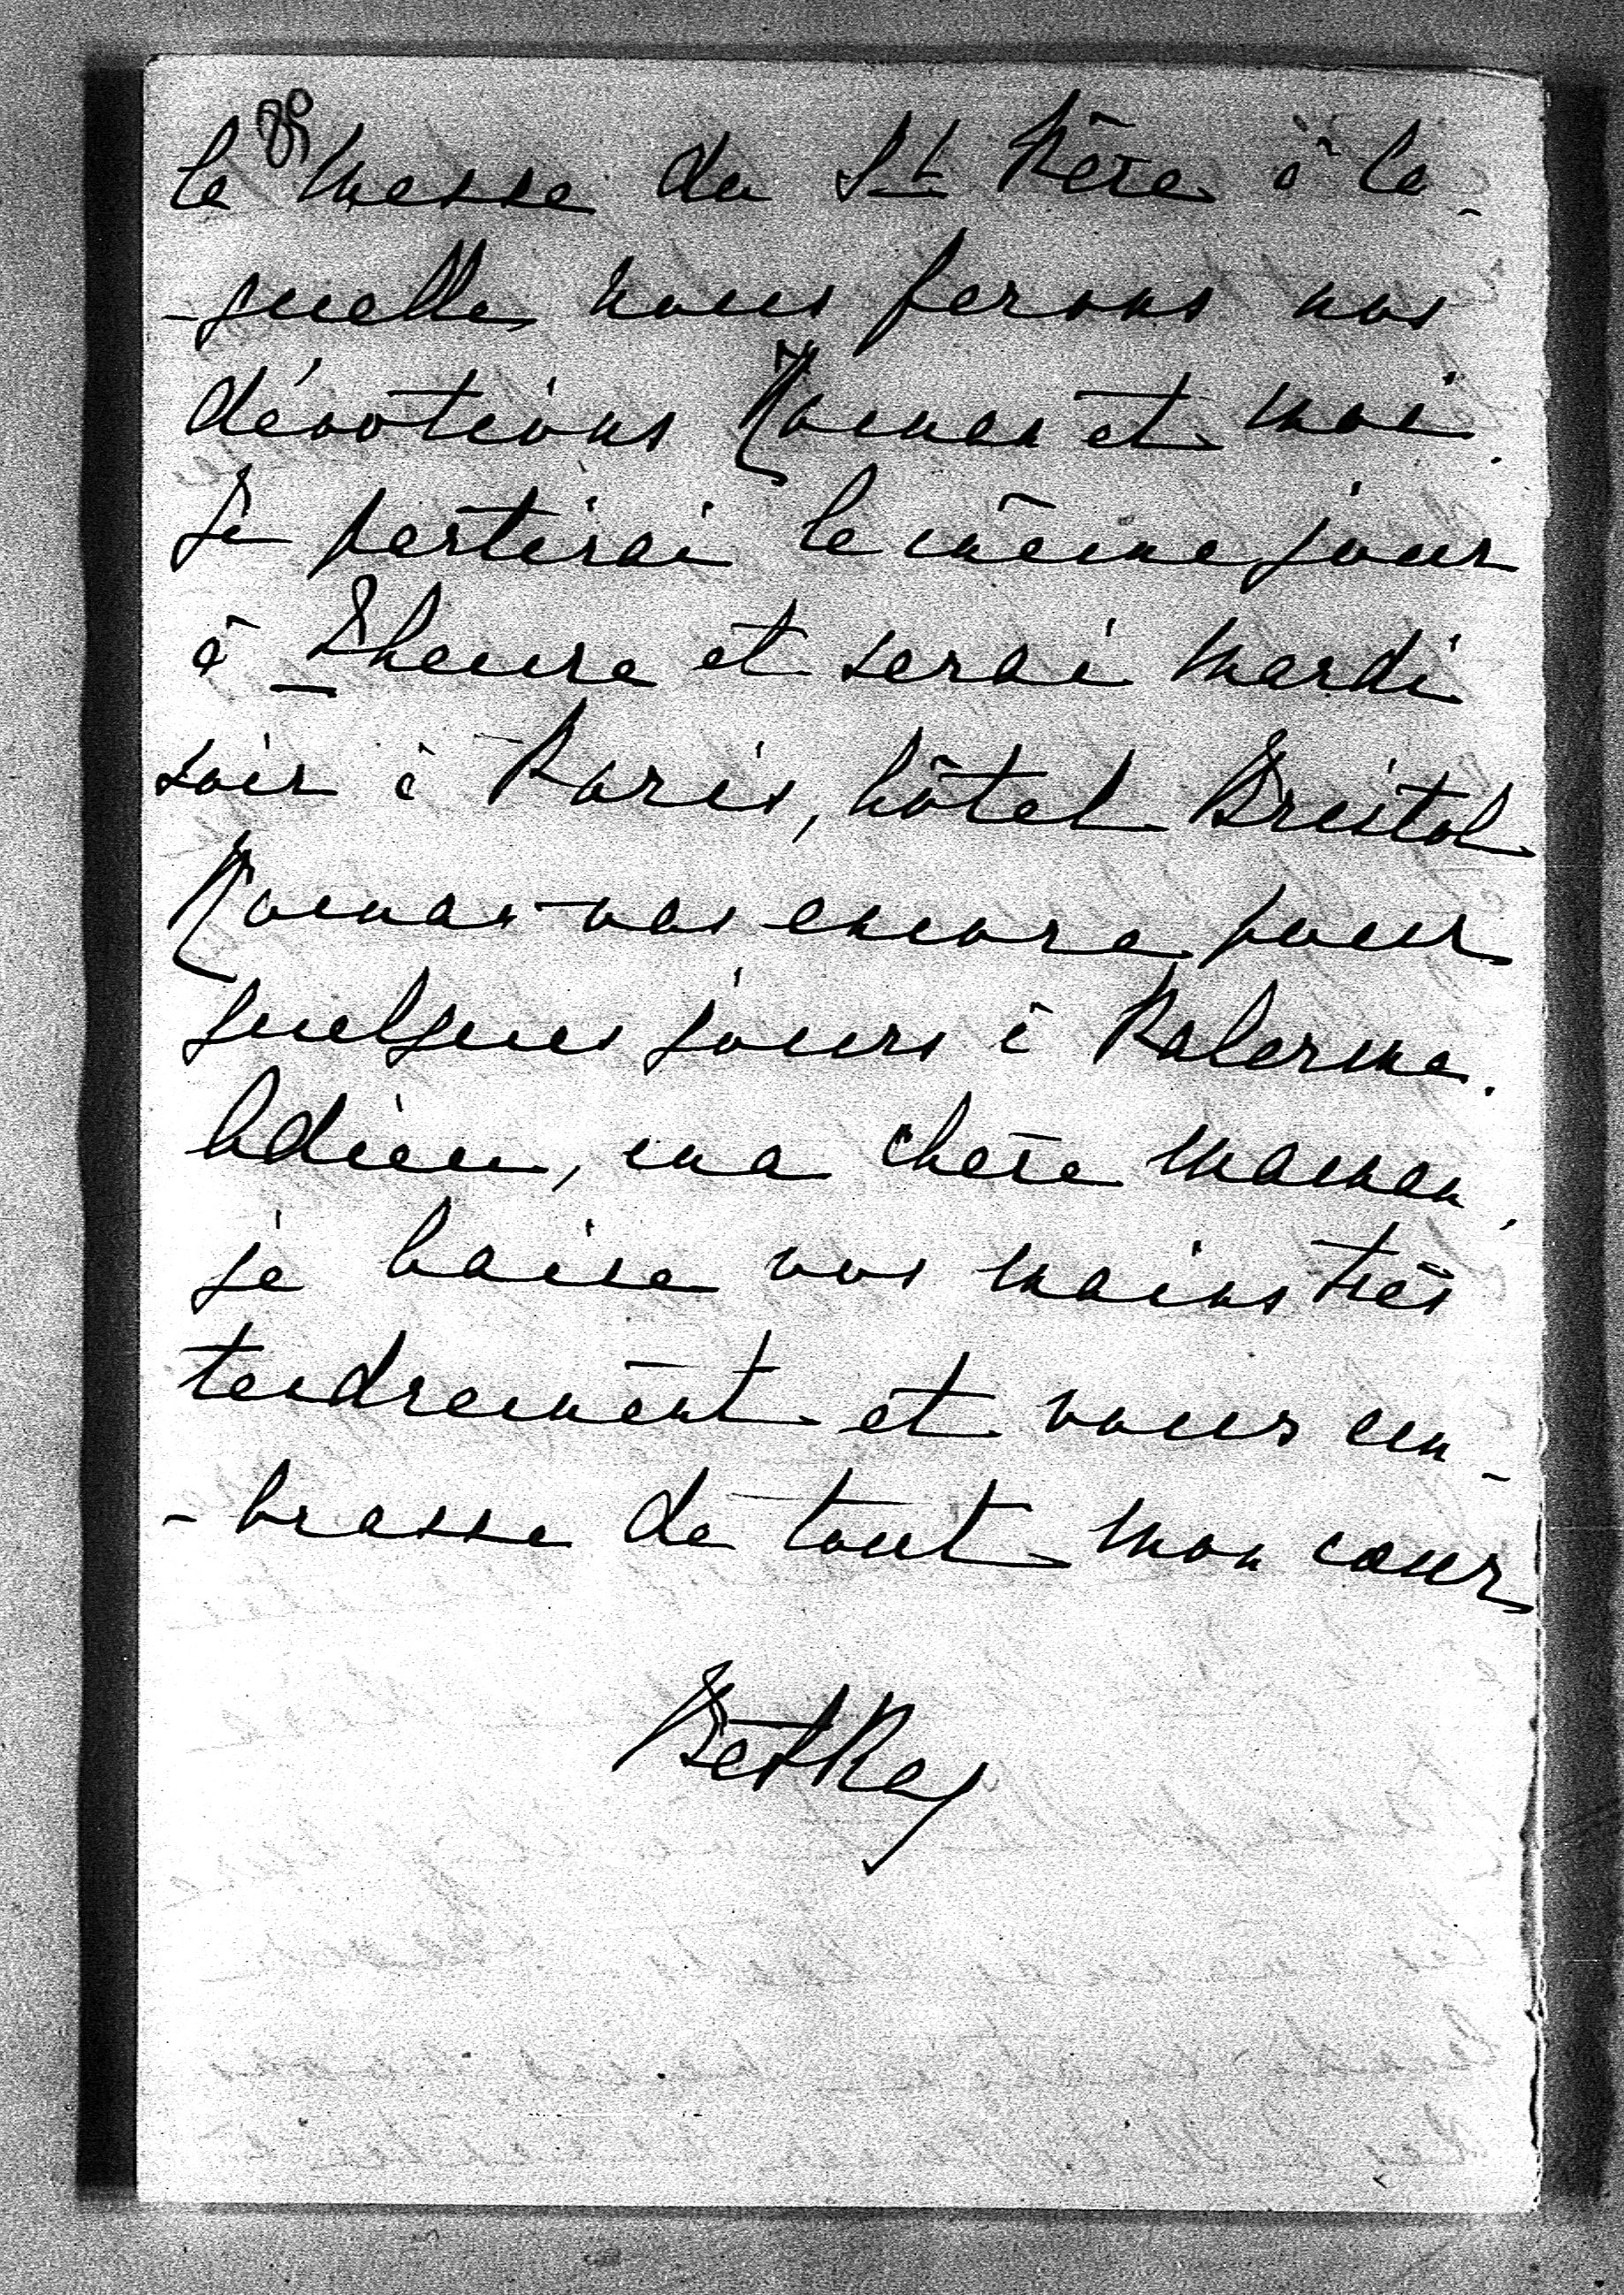 la Messe du St Père à la-
-quelle nous ferons nos
dévotions Roman et moi.
Je partirai le même jour
à 2 heure et serai Mardi
soir à Paris, hôtel Bristol
Roman va encore pour
quelques jours à Palerme.
Adieu, ma chère Maman,
je baise vos mains très
tendrement et vous em-
-brasse de tout mon cœur
Betka